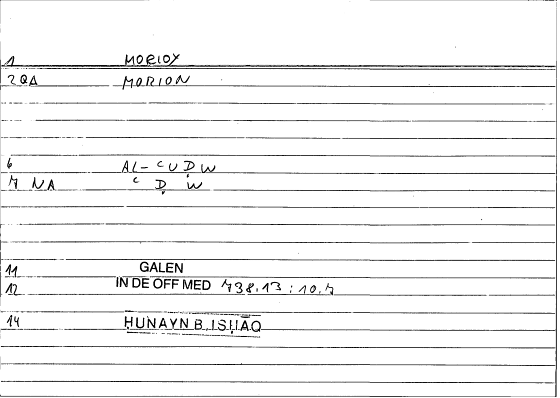 1 MORIOY
2 QΔ MORION
6 AL-ʿUḌW
7 NA ʿḌW
11 GALEN
12 IN DE OFF MED 738.13 : 10.7
14 ḤUNAYN B. ISḤĀQ